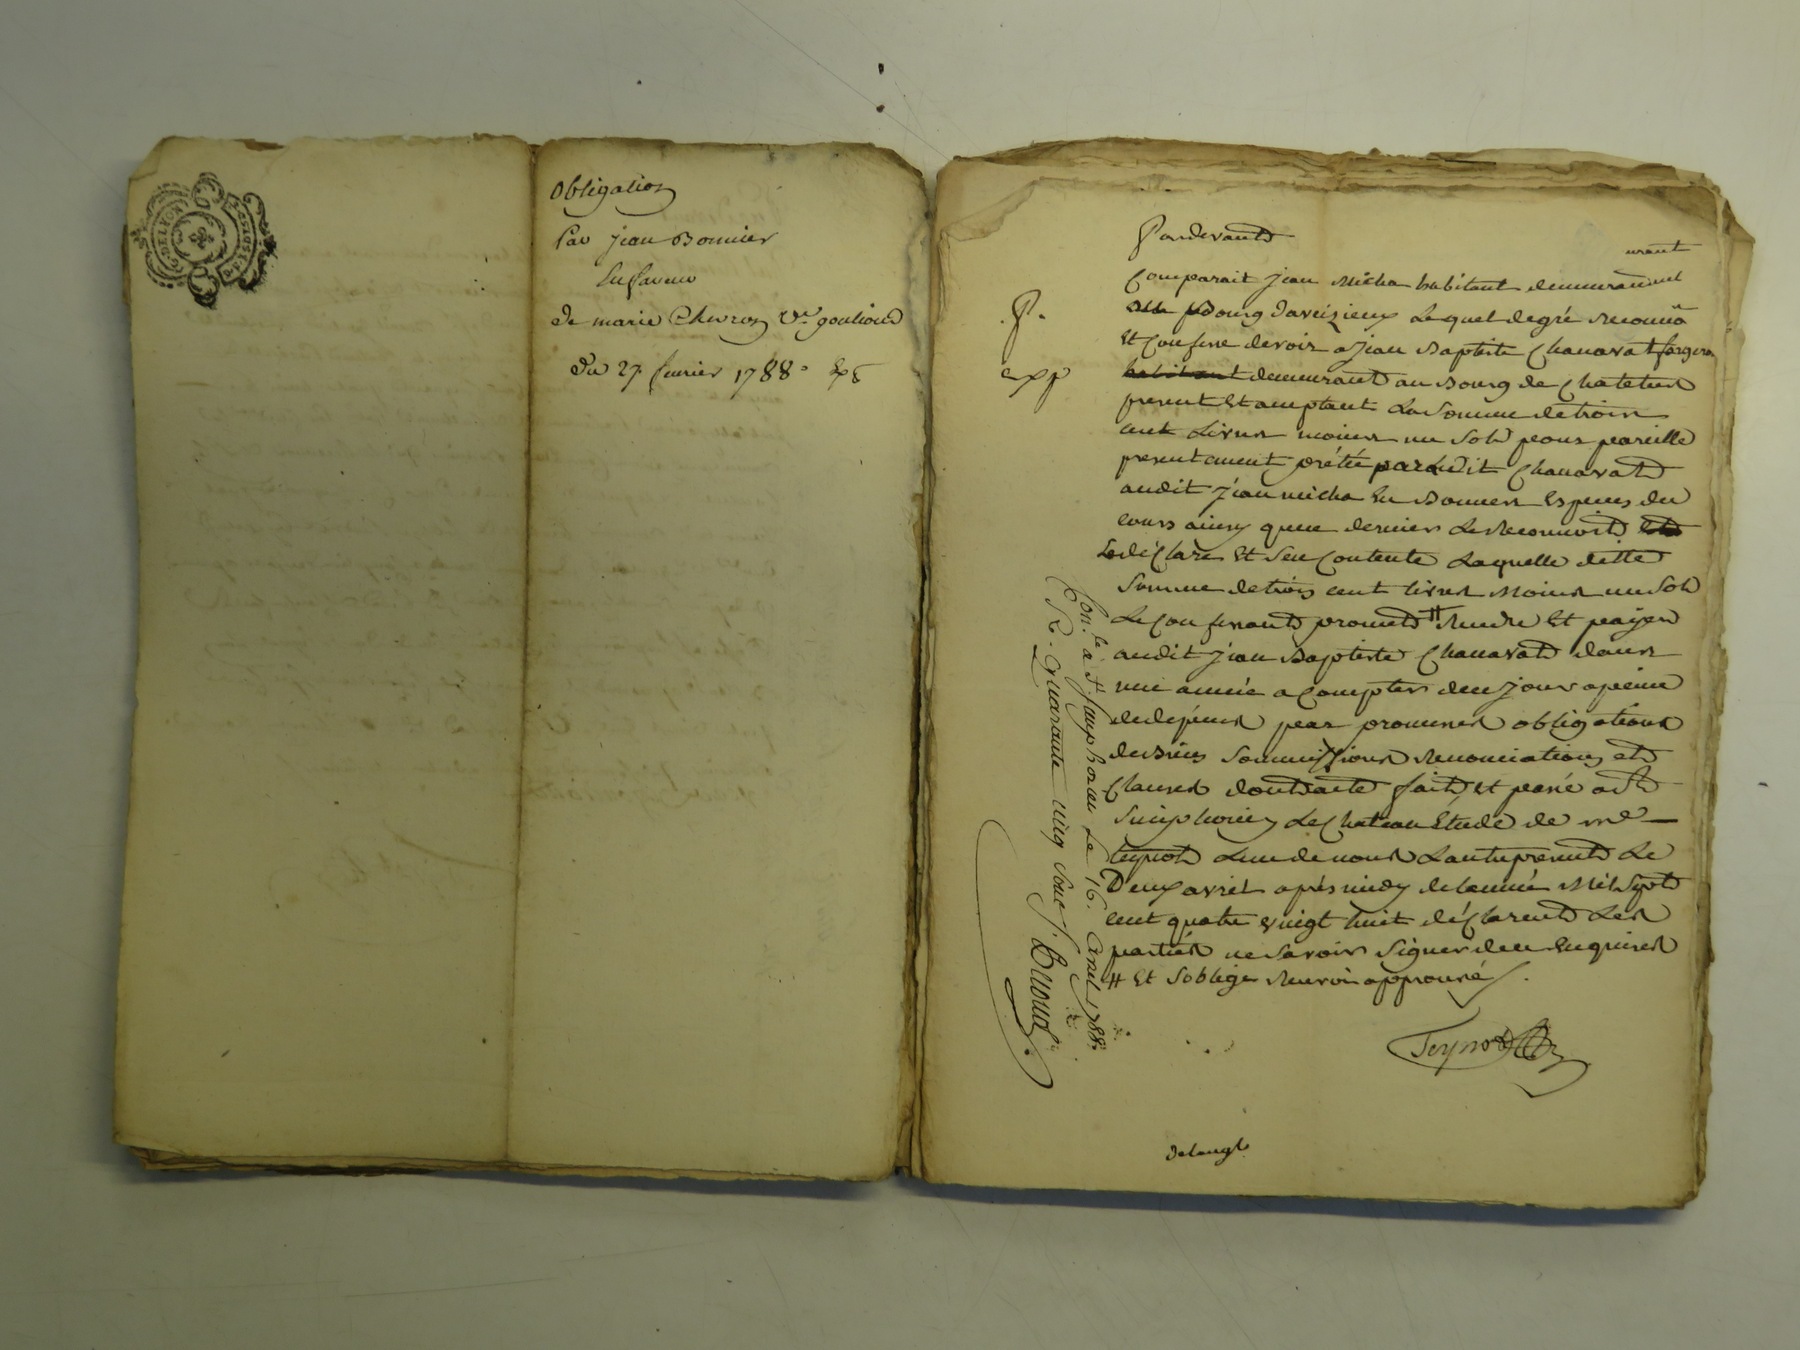 G. DE LYON
Obligation
Par jean Bonnier
En faveur
de marie Chevron Ve. goutioud
Du 27 fevrier 1788
Pardevant
Comparait jean Micha habitant demeurant
Bourg daveizieux Lequel de gré reconnû
Et Confesse devoir a jean Baptiste Chanavat
habitant demeurant au Bourg de Chatelus
present Et acceptant La Somme de trois
cent Livres moins un Sol pour pareille
presentement prétée par Ledit Chanavat
audit jean micha En Bonnes Especes du
cours ainsy que ce dernier Le Reconnoit
Le déClare Et Sen Contente Laquelle ditte
Somme de trois cent livres Moins un Sol
Le Confessant promet # Rendre Et payer
audit jean Baptiste Chanavat dans
une année a Compter de ce jour a peine
de depens par promesses obligations
de biens Soumissions Renonciations et
Clauses dont acte fait et passé a St
Simphorien Le Chateau Etude de me
teynot Lun de nous Lautre present Le
Deux avril aprés midy de lannée Mil Sept
cent quatre vingt huit déClarent Les
parties ne Savoir Signer de ce Enquises
# Et Soblige Renvoi approuvé
Teynot
Con.le a St. Simphorien Le 16. Avril 1788.
R. quarante cinq sous